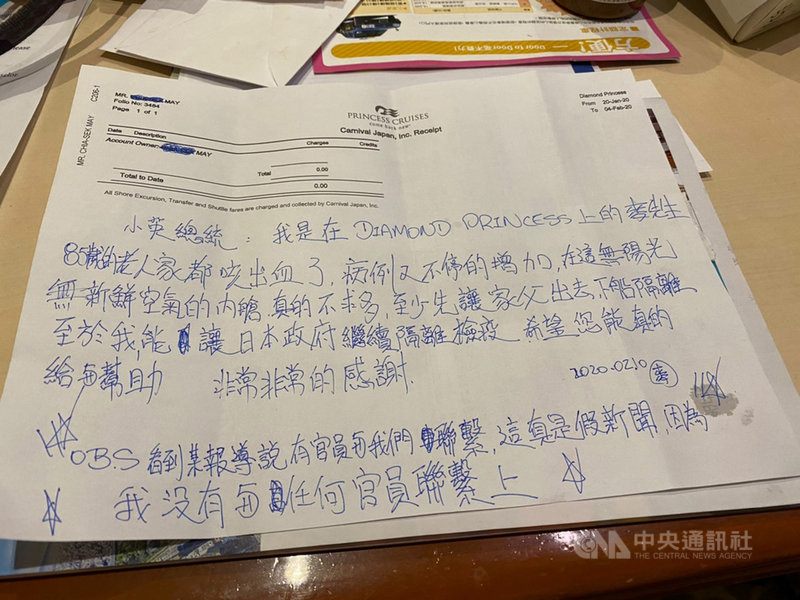 方便! — Door to Door
MR. CHIA-SEK MAY C206-1
MR. MAY
Folio No: 3484
Page 1 of 1
PRINCESS CRUISES
come back new
Carnival Japan, Inc. Receipt
Diamond Princess
From 20-Jan-20
To 04-Feb-20
Date Description Charges Credits
Account Owner: MAY
Total 0.00
Total to Date 0.00
All Shore Excursion, Transfer and Shuttle fares are charged and collected by Carnival Japan, Inc.
小英總統: 我是在 DIAMOND PRINCESS 上的 先生
85歲的老人家都咳出血了, 病例又不停的增加, 在這無陽光
無新鮮空氣的內艙, 真的不求多, 至少先讓家父出去, 下船隔離
至於我, 能讓日本政府繼續隔離檢疫 希望您能真的
給 幫助 非常非常的感謝.
2020.02.10
OBS 看到某報導說有官員 我們 聯繫, 這真是假新聞, 因為
我没有 任何官員聯繫上
CNA 中央通訊社
THE CENTRAL NEWS AGENCY